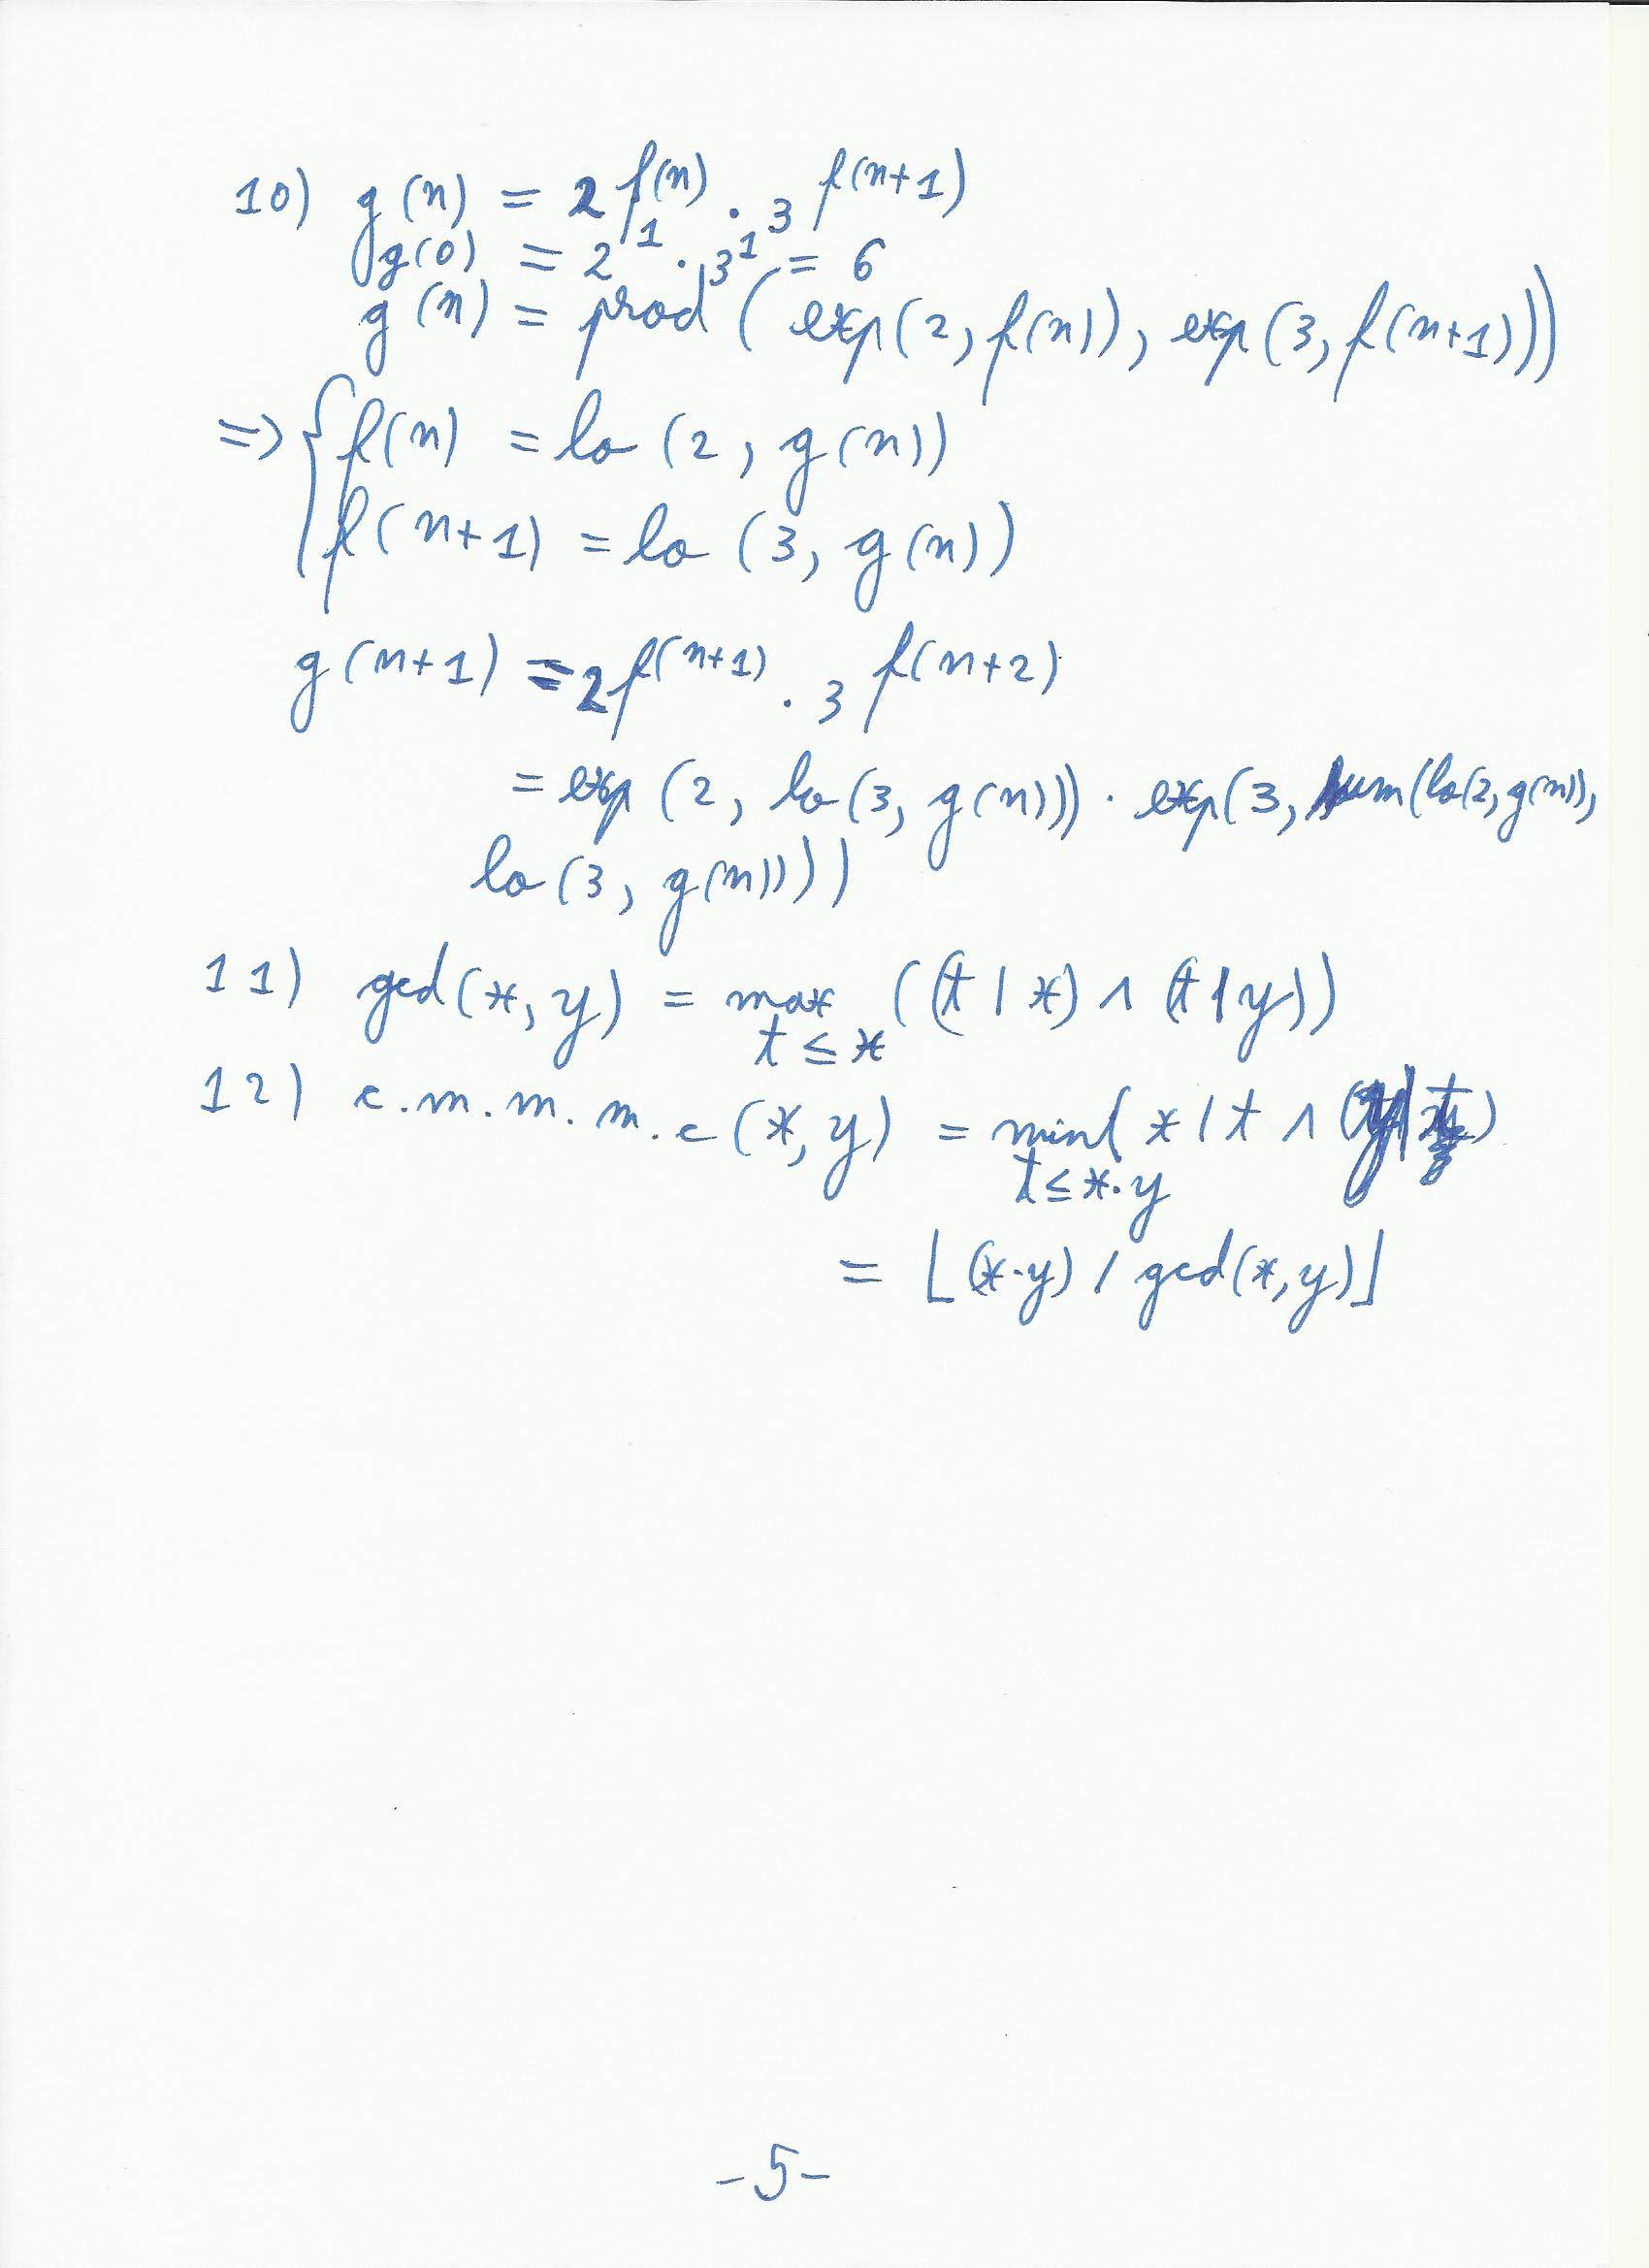 10) g(n) = 2^f(n) · 3^f(n+1)
g(0) = 2^1 · 3^1 = 6
g(n) = prod(exp(2, f(n)), exp(3, f(n+1)))
=> { f(n) = lo(2, g(n))
f(n+1) = lo(3, g(n))
g(n+1) = 2^f(n+1) · 3^f(n+2)
= exp(2, lo(3, g(n))) · exp(3, sum(lo(2, g(n)),
lo(3, g(n))))
11) gcd(x, y) = max ((t | x) ∧ (t | y))
t ≤ x
12) c.m.m.m.c(x, y) = min( x | t ∧ (y | t)
t ≤ x·y
= ⌊(x·y) / gcd(x, y)⌋
-5-